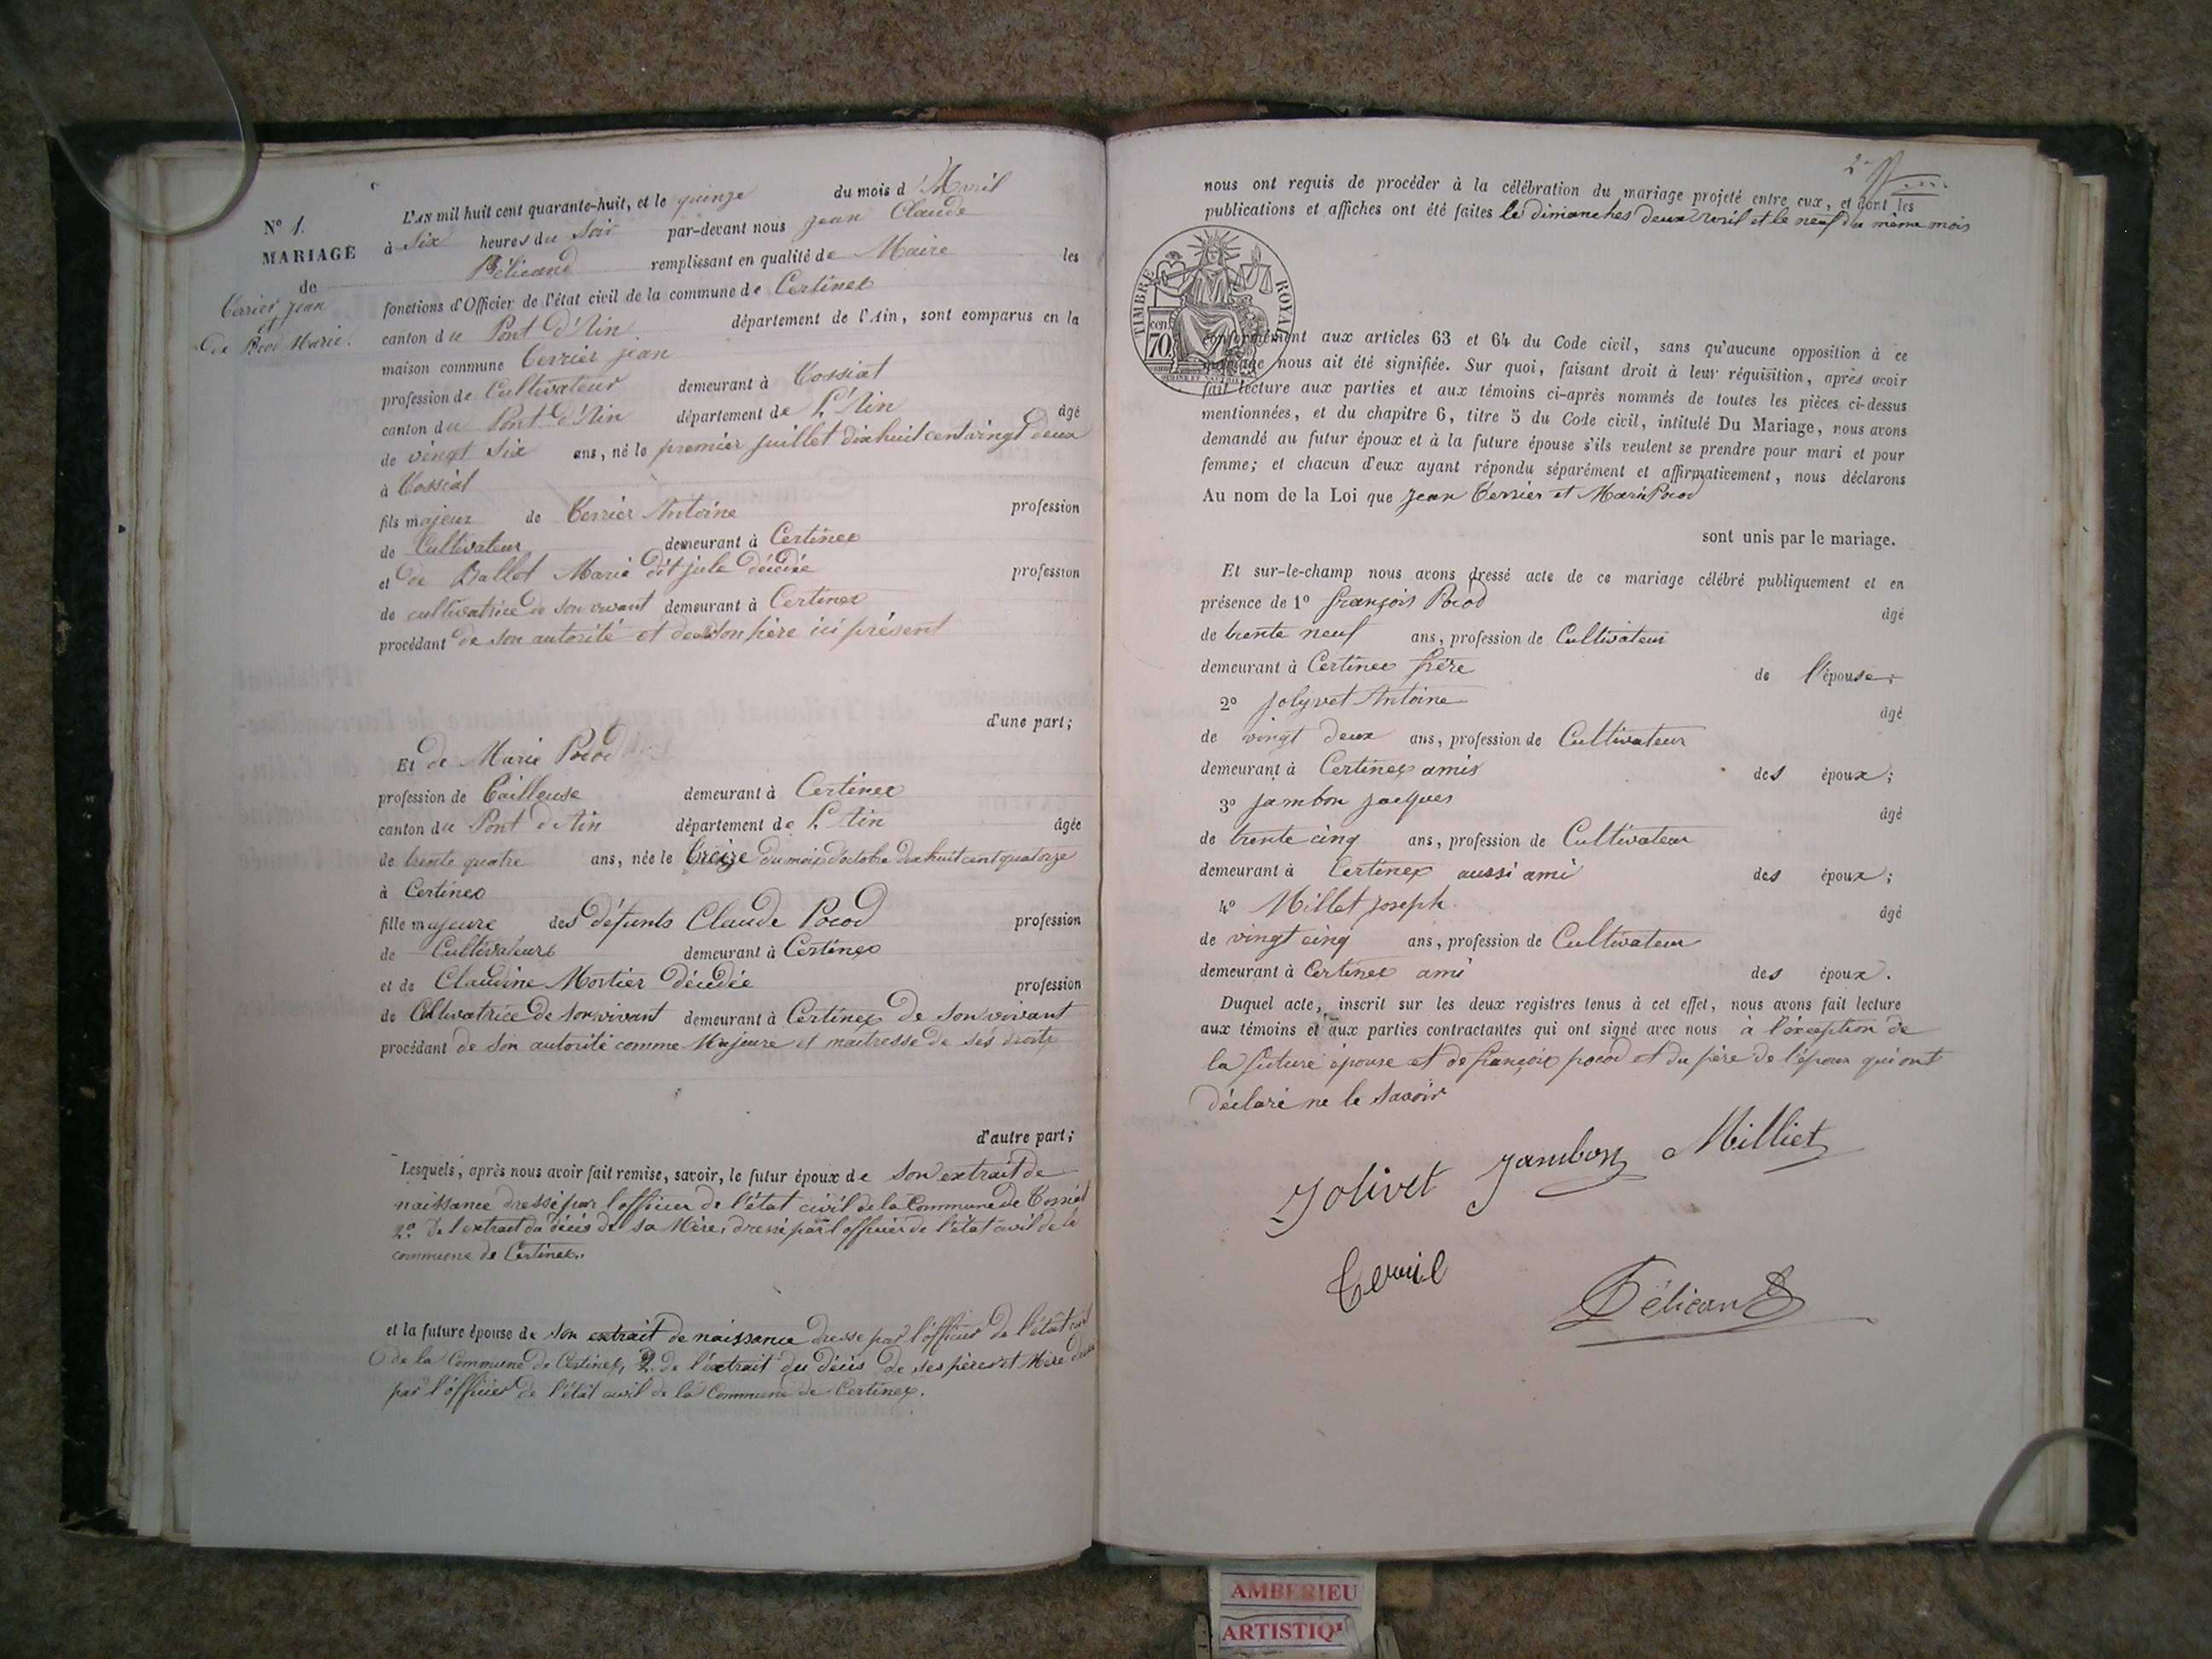 N° 1.
MARIAGE
de
Terrier jean
et
de Pocod Marie.
L'AN mil huit cent quarante-huit, et le quinze du mois d'Avril
à Six heures du Soir par-devant nous jean Claude
Pélicand remplissant en qualité de Maire les
fonctions d'Officier de l'état civil de la commune de Certines
canton du Pont d'Ain département de l'Ain, sont comparus en la
maison commune Terrier jean
profession de Cultivateur demeurant à Tossiat
canton du Pont d'Ain département de L'Ain âgé
de vingt Six ans, né le premier juillet dix huit cent vingt deux
à Tossiat
fils majeur de Terrier Antoine profession
de Cultivateur demeurant à Certines
et de Ballet Marie dit jule décédée profession
de cultivatrice de son vivant demeurant à Certines
procédant de son autorité et de son père ici présent
d'une part;
Et de Marie Pocod
profession de Tailleuse demeurant à Certines
canton du Pont d'Ain département de L'Ain âgée
de trente quatre ans, née le treize du mois d'octobre dix huit cent quatorze
à Certines
fille majeure des défunts Claude Pocod profession
de Cultivateurs demeurant à Certines
et de Claudine Mortier décédée profession
de Cultivatrice de son vivant demeurant à Certines de son vivant
procédant de son autorité comme Majeure et maitresse de ses droits
d'autre part;
Lesquels, après nous avoir fait remise, savoir, le futur époux de son extrait de
naissance dressé par l'officier de l'état civil de la Commune de Tossiat
2° De l'extrait du décès de sa Mère, dressé par l'officier de l'état civil de la
commune de Certines.
et la future épouse de son extrait de naissance dressé par l'officier de l'état civil
de la Commune de Certines, 2. de l'extrait du décès de ses pères et Mère
par l'officier de l'état civil de la Commune de Certines.
nous ont requis de procéder à la célébration du mariage projeté entre eux, et dont les
publications et affiches ont été faites les dimanches deux avril et le neuf du même mois
TIMBRE ROYAL
cen. 70
conformément aux articles 63 et 64 du Code civil, sans qu'aucune opposition à ce
mariage nous ait été signifiée. Sur quoi, faisant droit à leur réquisition, après avoir
fait lecture aux parties et aux témoins ci-après nommés de toutes les pièces ci-dessus
mentionnées, et du chapitre 6, titre 5 du Code civil, intitulé Du Mariage, nous avons
demandé au futur époux et à la future épouse s'ils veulent se prendre pour mari et pour
femme; et chacun d'eux ayant répondu séparément et affirmativement, nous déclarons
Au nom de la Loi que jean Terrier et Marie Pocod
sont unis par le mariage.
Et sur-le-champ nous avons dressé acte de ce mariage célébré publiquement et en
présence de 1° françois Pocod âgé
de trente neuf ans, profession de Cultivateur
demeurant à Certines frère de l'épouse;
2° Jolyvet Antoine âgé
de vingt deux ans, profession de Cultivateur
demeurant à Certines amis des époux;
3° Jambon jacques âgé
de trente cinq ans, profession de Cultivateur
demeurant à Certines aussi ami des époux;
4° Millet joseph âgé
de vingt cinq ans, profession de Cultivateur
demeurant à Certines ami des époux.
Duquel acte, inscrit sur les deux registres tenus à cet effet, nous avons fait lecture
aux témoins et aux parties contractantes qui ont signé avec nous à l'exception de
la future épouse et de françois pocod et du père de l'époux qui ont
déclaré ne le savoir
Jolivet Jambon Milliet
Pélicand
AMBERIEU
ARTISTIQ